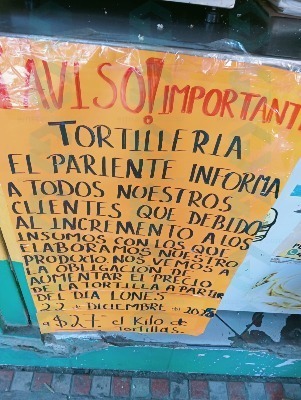 ¡AVISO! IMPORTANTE
TORTILLERIA
EL PARIENTE INFORMA
A TODOS NUESTROS
CLIENTES QUE DEBIDO
AL INCREMENTO A LOS
INSUMOS CON LOS QUE
ELABORAMOS NUESTRO
PRODUCTO. NOS VEMOS A
LA OBLIGACION DE
AUMENTAR EL PRECIO
DE LA TORTILLA A PARTIR
DEL DIA LUNES
22 DICIEMBRE 2025
a $27 el Kilo de
tortillas